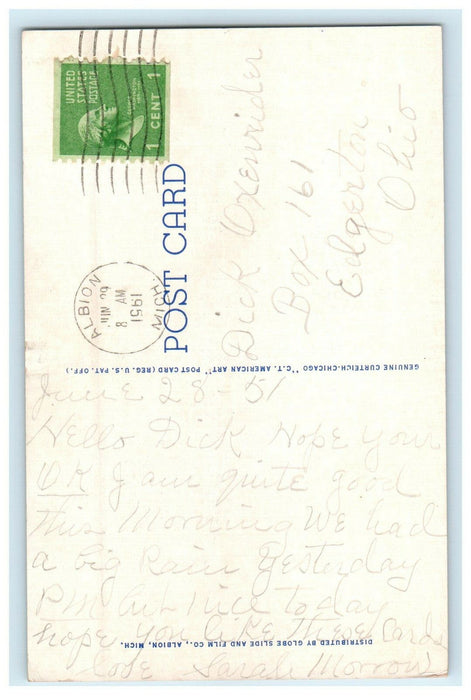 UNITED
STATES
POSTAGE
1 CENT 1
ALBION
MICH
8 AM
1951
POST CARD
Dick Oxenrider
Box 161
Edgerton
Ohio
GENUINE CURTEICH-CHICAGO "C.T. AMERICAN ART" POST CARD (REG. U.S. PAT. OFF.)
June 28-51
Hello Dick Hope your
OK I am quite good
This Morning We had
a big Rain Yesterday
PM but Nice today
hope you like These Cards
DISTRIBUTED BY GLOBE SLIDE AND FILM CO., ALBION, MICH.
Love Sarah Morrow